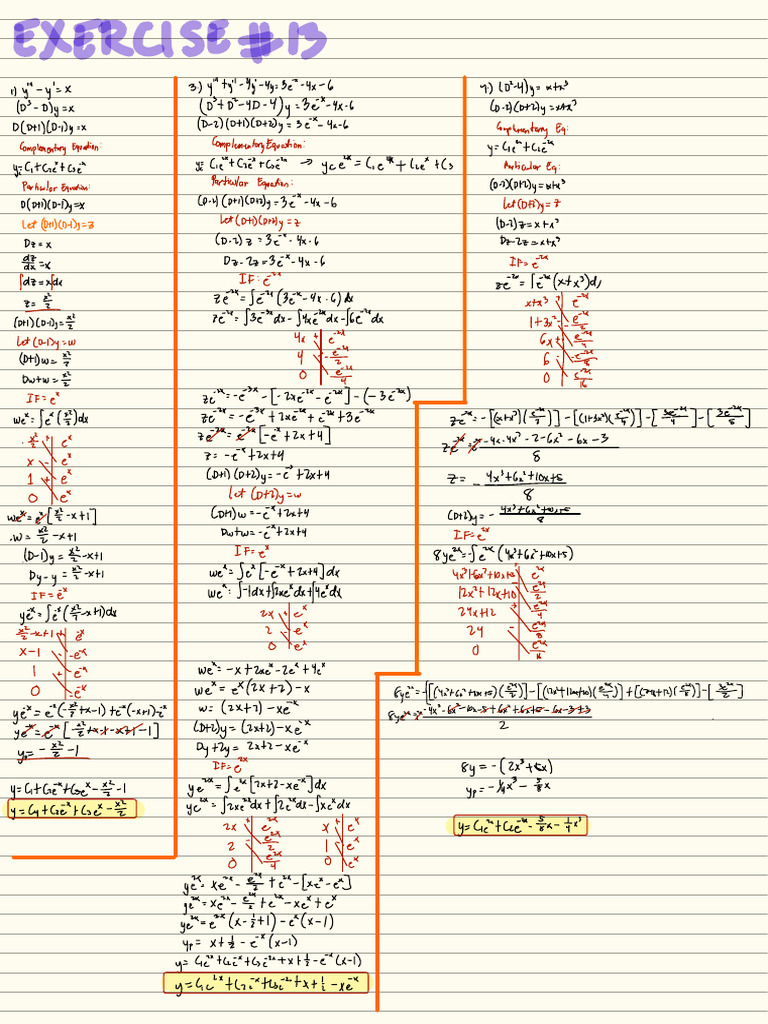 EXERCISE #13
1.) y''' - y' = x
(D³ - D)y = x
D(D+1)(D-1)y = x
Complementary Equation:
y_c = C₁ + C₂eˣ + C₃e⁻ˣ
Particular Equation:
D(D+1)(D-1)y = x
Let (D+1)(D-1)y = z
Dz = x
dz/dx = x
∫dz = x∫dx
z = x²/2
(D+1)(D-1)y = x²/2
Let (D-1)y = w
(D+1)w = x²/2
Dw + w = x²/2
IF = eˣ
weˣ = ∫eˣ(x²/2)dx
x²/2 + eˣ
x - eˣ
1 + eˣ
0 eˣ
weˣ = eˣ[x²/2 - x + 1]
w = x²/2 - x + 1
(D-1)y = x²/2 - x + 1
Dy - y = x²/2 - x + 1
IF = e⁻ˣ
ye⁻ˣ = ∫e⁻ˣ(x²/2 - x + 1)dx
x²/2 - x + 1 + e⁻ˣ
x - 1 - -e⁻ˣ
1 + e⁻ˣ
0 -e⁻ˣ
ye⁻ˣ = e⁻ˣ(-x²/2 + x - 1) + e⁻ˣ(-x+1) - e⁻ˣ
ye⁻ˣ = e⁻ˣ[-x²/2 + x - 1 - x + 1 - 1]
y_p = -x²/2 - 1
y = C₁ + C₂e⁻ˣ + C₃eˣ - x²/2 - 1
y = C₄ + C₂e⁻ˣ + C₃eˣ - x²/2
3.) y''' + y'' - 4y' - 4y = 3e⁻ˣ - 4x - 6
(D³ + D² - 4D - 4)y = 3e⁻ˣ - 4x - 6
(D-2)(D+1)(D+2)y = 3e⁻ˣ - 4x - 6
Complementary Equation:
Particular Equation:
(D-2)(D+1)(D+2)y = 3e⁻ˣ - 4x - 6
Let (D+1)(D+2)y = z
(D-2)z = 3e⁻ˣ - 4x - 6
Dz - 2z = 3e⁻ˣ - 4x - 6
IF: e⁻²ˣ
ze⁻²ˣ = ∫e⁻²ˣ(3e⁻ˣ - 4x - 6)dx
ze⁻²ˣ = ∫3e⁻³ˣdx - ∫4xe⁻²ˣdx - ∫6e⁻²ˣdx
4x + e⁻²ˣ
4 - -e⁻²ˣ/2
0 e⁻²ˣ/4
ze⁻²ˣ = -e⁻³ˣ - [-2xe⁻²ˣ - e⁻²ˣ] - (-3e⁻²ˣ)
ze⁻²ˣ = -e⁻³ˣ + 2xe⁻²ˣ + e⁻²ˣ + 3e⁻²ˣ
ze⁻²ˣ = e⁻²ˣ[-e⁻ˣ + 2x + 4]
z = -e⁻ˣ + 2x + 4
(D+1)(D+2)y = -e⁻ˣ + 2x + 4
Let (D+2)y = w
(D+1)w = -e⁻ˣ + 2x + 4
Dw + w = -e⁻ˣ + 2x + 4
IF = eˣ
weˣ = ∫eˣ[-e⁻ˣ + 2x + 4]dx
weˣ = ∫-1dx + ∫2xeˣdx + ∫4eˣdx
2x + eˣ
2 - eˣ
0 eˣ
weˣ = -x + 2xeˣ - 2eˣ + 4eˣ
weˣ = eˣ(2x + 2) - x
w = (2x + 2) - xe⁻ˣ
(D+2)y = (2x+2) - xe⁻ˣ
Dy + 2y = 2x + 2 - xe⁻ˣ
IF = e²ˣ
ye²ˣ = ∫e²ˣ[2x + 2 - xe⁻ˣ]dx
ye²ˣ = ∫2xe²ˣdx + ∫2e²ˣdx - ∫xeˣdx
2x + e²ˣ x + eˣ
2 - e²ˣ/2 1 - eˣ
0 e²ˣ/4 0 eˣ
ye²ˣ = xe²ˣ - e²ˣ/2 + e²ˣ - [xeˣ - eˣ]
ye²ˣ = xe²ˣ - e²ˣ/2 + e²ˣ - xeˣ + eˣ
ye²ˣ = e²ˣ(x - ½ + 1) - eˣ(x-1)
y_p = x + ½ - e⁻ˣ(x-1)
y = C₁e²ˣ + C₂e⁻ˣ + C₃e⁻²ˣ + x + ½ - e⁻ˣ(x-1)
(D-2)(D+2)y = x + x³
Complementary Eq:
y = C₁e²ˣ + C₂e⁻²ˣ
Particular Eq:
(D-2)(D+2)y = x + x³
Let (D+2)y = z
(D-2)z = x + x³
Dz - 2z = x + x³
IF = e⁻²ˣ
x + x³ + e⁻²ˣ
z = - 4x³ + 6x² + 10x + 5 / 8
(D+2)y = - 4x³ + 6x² + 10x + 5 / 8
IF = e²ˣ
8ye²ˣ = -∫e²ˣ(4x³ + 6x² + 10x + 5)
4x³ + 6x² + 10x + 5 + e²ˣ
12x² + 12x + 10 - e²ˣ/2
24x + 12 + e²ˣ/4
24 - e²ˣ/8
8y = -(2x³ + 5x)
y_p = -¼x³ - ⅝x
y = C₁e²ˣ + C₂e⁻²ˣ - ⅝x - ¼x³